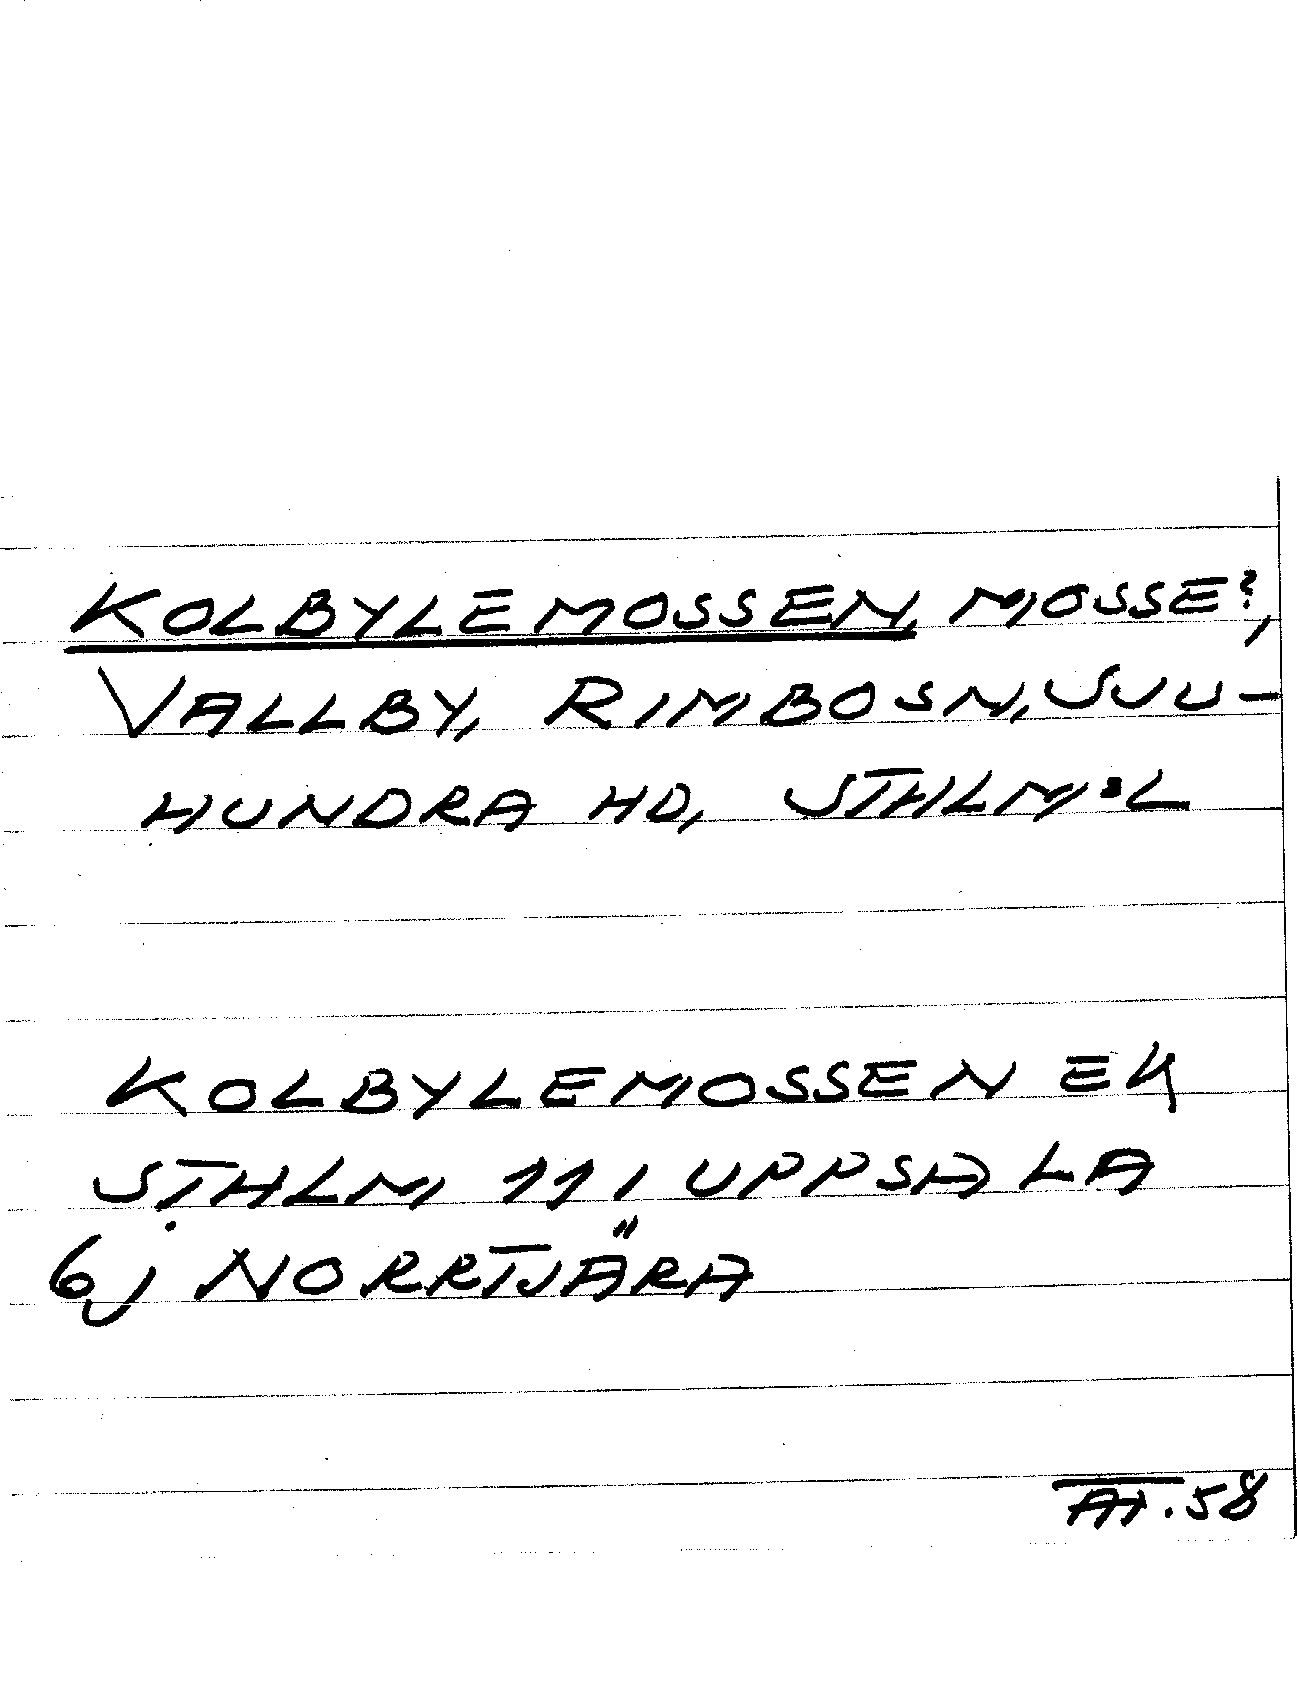 KOLBYLEMOSSEN, MOSSE?,
VALLBY, RIMBOSN, SJU-
HUNDRA HD, STHLM:L
KOLBYLEMOSSEN EK
STHLM 111 UPPSALA
6j NORRTJÄRA
AT.58